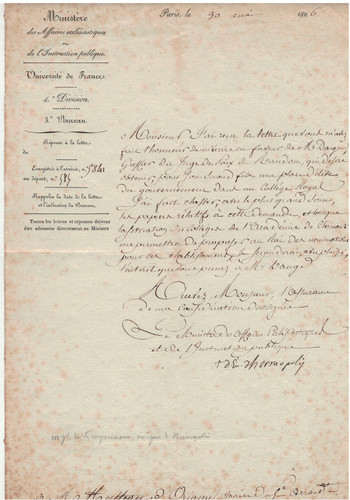 Ministère
des Affaires ecclésiastiques
et
de l'Instruction publique.
Université de France.
4.e Division.
3.e Bureau.
Réponse à la lettre
du
Enregistrée à l'arrivée, n.o
au départ, n.o 585
Rappeler la date de la lettre
et l'indication du Bureau.
Toutes les lettres et réponses doivent
être adressées directement au Ministre
Paris, le 30 mai 1826
Monsieur, j'ai reçu la lettre que vous m'avez
fait l'honneur de m'écrire en faveur de M.
Greffier du Juge de Paix de qui desire
obtenir, pour son second fils une place d'élève
du Gouvernement dans un Collège Royal
J'ai fait classer, avec le plus grand soin,
les papiers relatifs à cette demande, et lorsque
la situation des collèges de l'Académie de Clermont
me permettra de proposer au Roi des nominations
pour ces établissements, je prendrai au plaisir
l'intérêt que vous prenez à M.
Recevez Monsieur, l'assurance
de ma considération distinguée
Le Ministre des Affaires Ecclésiastiques
et de l'Instruction publique
+ D. Ev. d'hermopolis
mgr de Frayssinous, évêque d'Hermopolis